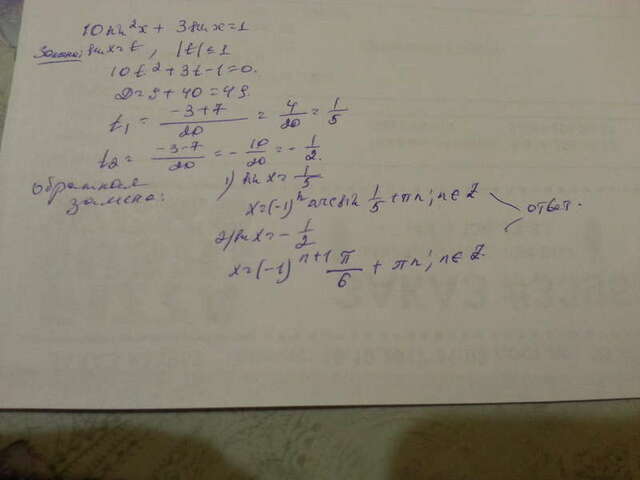 10 sin²x + 3 sin x = 1
Замена: sin x = t, |t| ≤ 1
10t² + 3t - 1 = 0.
D = 9 + 40 = 49
t₁ = (-3+7)/20 = 4/20 = 1/5
t₂ = (-3-7)/20 = -10/20 = -1/2.
Обратная замена: 1) sin x = 1/5
x = (-1)ⁿ arcsin 1/5 + πn; n ∈ Z
ответ.
2) sin x = -1/2
x = (-1)ⁿ⁺¹ π/6 + πn; n ∈ Z